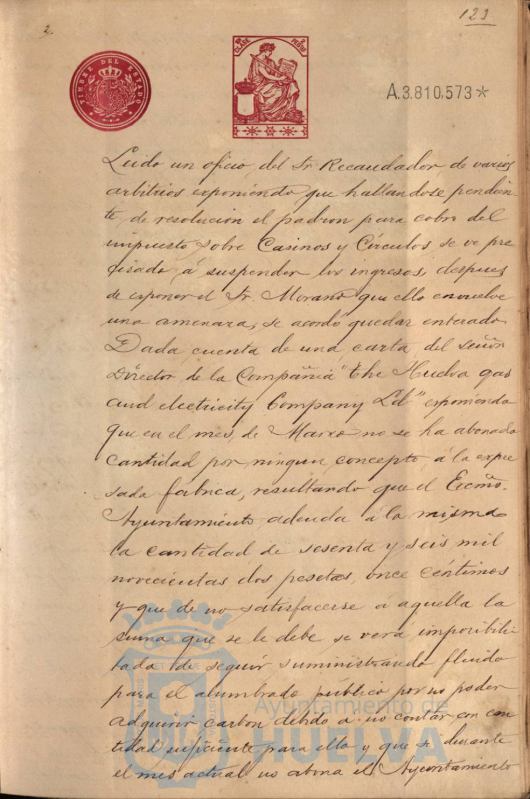 2.
123
TIMBRE DEL ESTADO
CLASE
A.3.810.573*
Leido un oficio del Sr Recaudador de varios
arbitrios exponiendo que hallandose pendien
te de resolución el padron para cobro del
impuesto sobre Casinos y Círculos se ve pre
cisado á suspender los ingresos, despues
de exponer el Sr. Morano que ello envuelve
una amenaza, se acordó quedar enterado
Dada cuenta de una carta del Señor
Director de la Compañia "The Huelva gas
and electricity Company Ld" exponiendo
que en el mes de Marzo no se ha abonado
cantidad por ningun concepto á la expre
sada fábrica, resultando que el Excmo.
Ayuntamiento adeuda á la misma
la cantidad de sesenta y seis mil
novecientas dos pesetas, once céntimos
y que de no satisfacerse á aquella la
suma que se le debe, se verá imposibili
tada de seguir suministrando fluido
para el alumbrado público por no poder
adquirir carbon debido a no contar con can
tidad suficiente para ello y que si durante
el mes actual no abona el Ayuntamiento
Ayuntamiento de
HUELVA